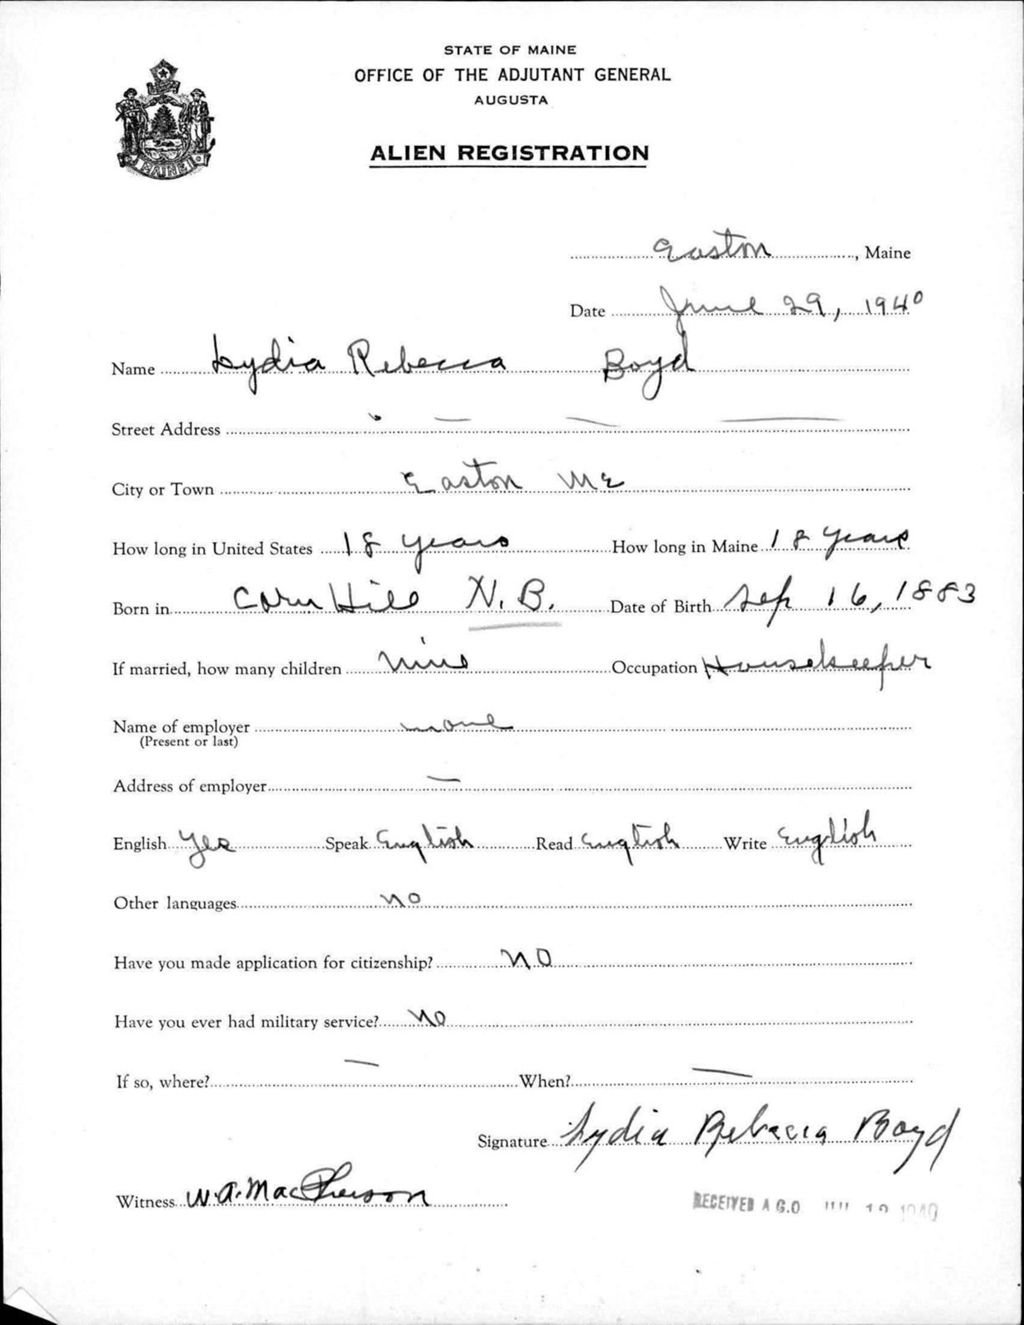 STATE OF MAINE
OFFICE OF THE ADJUTANT GENERAL
AUGUSTA
ALIEN REGISTRATION
MAINE
Easton, Maine
Date June 29, 1940
Name Lydia Rebecca Boyd
Street Address —
City or Town Easton Me
How long in United States 18 years How long in Maine 18 years
Born in Corn Hill N.B. Date of Birth Sep 16, 1883
If married, how many children nine Occupation Housekeeper
Name of employer none
(Present or last)
Address of employer —
English Yes Speak English Read English Write English
Other languages no
Have you made application for citizenship? NO
Have you ever had military service? NO
If so, where? — When? —
Signature Lydia Rebecca Boyd
Witness W.A. MacPherson
RECEIVED A.G.O 1940